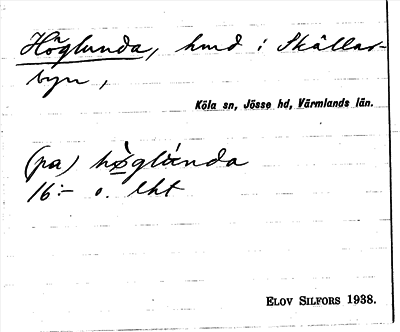 Höglunda, hmd i Skällar-
byn,
Köla sn, Jösse hd, Värmlands län.
(pa) hö̀glùnda
16:- o. lht
ELOV SILFORS 1938.